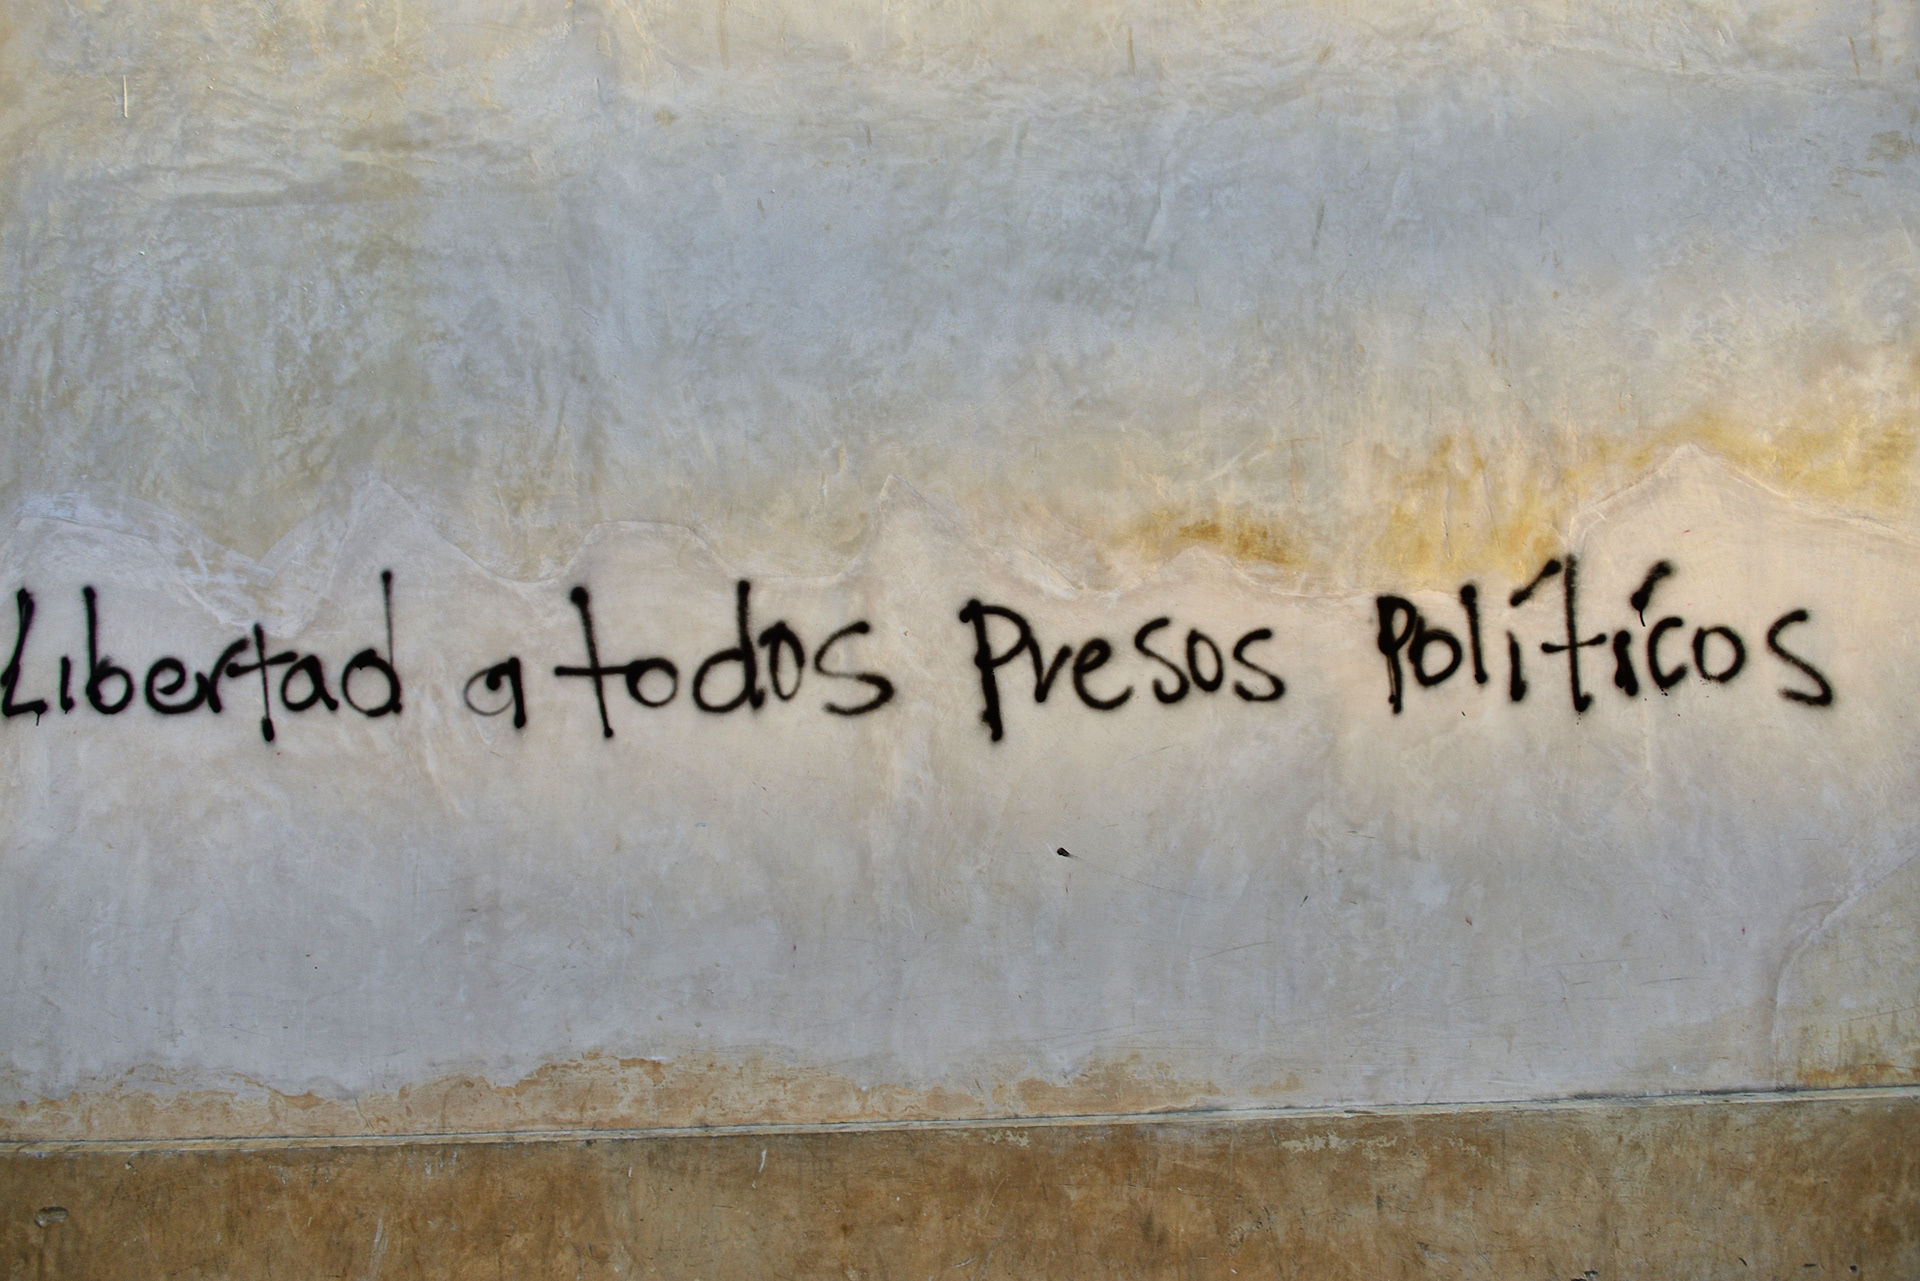 Libertad a todos Presos Polítícos